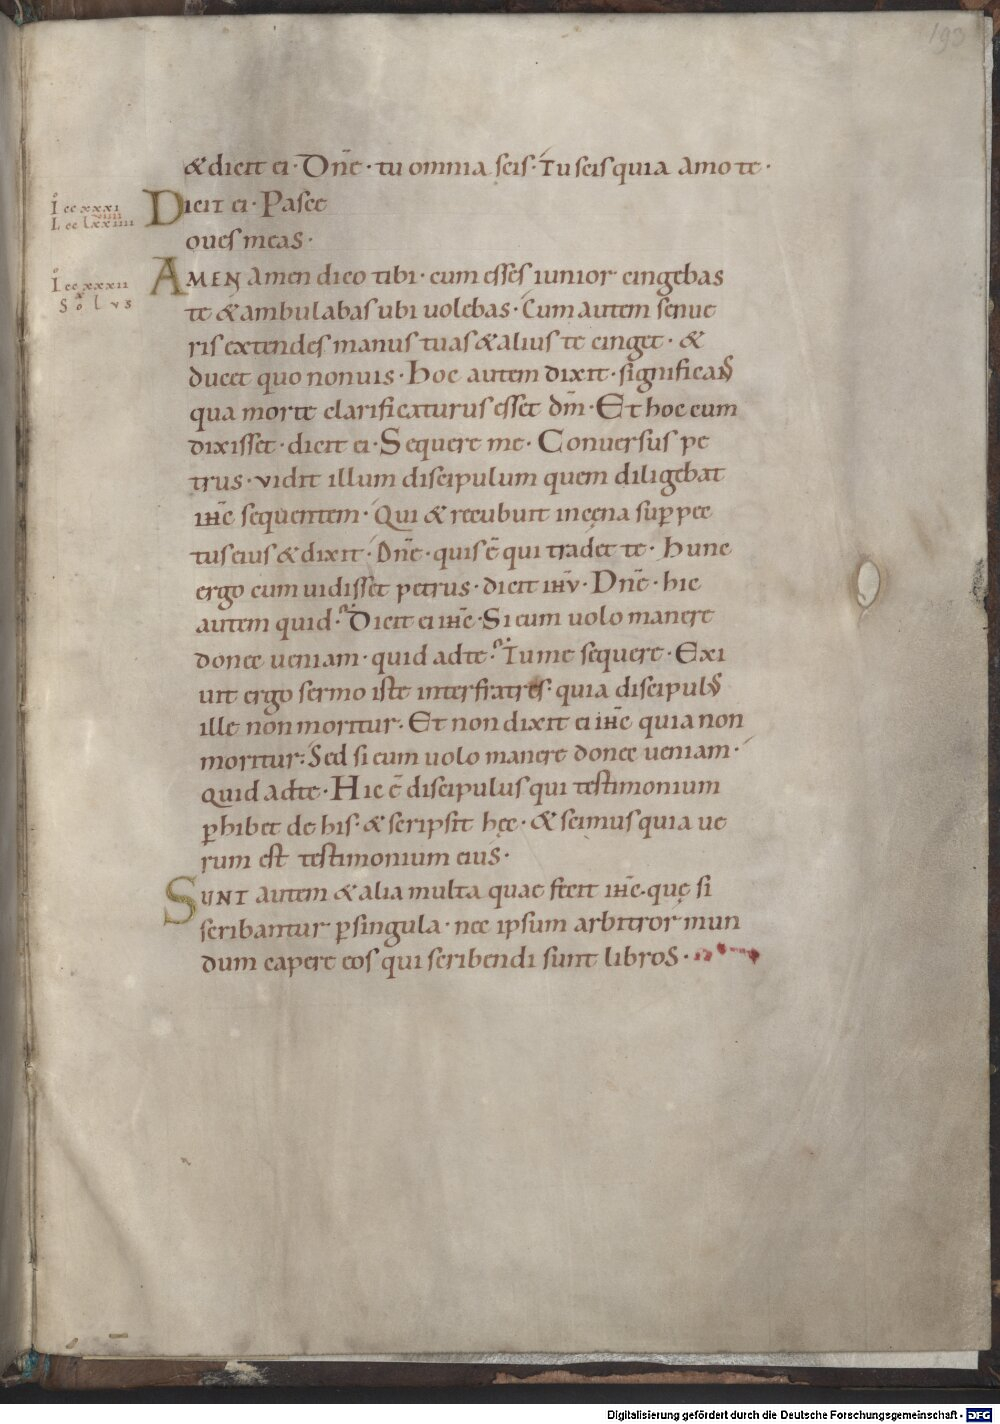 193
& dicit ei · Dñe · tu omnia scis · Tu scis quia amo te ·
Io ccxxxi
Dicit ei · Pasce
L cclxxiiii
oues meas ·
Io ccxxxii
AMEN amen dico tibi · cum esses iunior cingebas
Solus
te & ambulabas ubi uolebas · Cum autem senue
ris extendes manus tuas & alius te cinget · &
ducet quo non uis · hoc autem dixit · significans
qua morte clarificaturus esset dm̄ · Et hoc cum
dixisset · dicit ei · Sequere me · Conuersus pe
trus · vidit illum discipulum quem diligebat
ihc̄ sequentem · Qui & recubuit in cęna sup pec
tus eius & dixit · Dñe · quis ē qui tradet te · hunc
ergo cum uidisset petrus · dicit ihv̄ · Dñe · hic
autem quid · Dicit ei ihc̄ · Si eum uolo manere
donec ueniam · quid ad te · Tu me sequere · Exi
uit ergo sermo iste inter fratres · quia discipulus
ille non moritur · Et non dixit ei ihc̄ quia non
moritur : Sed si eum uolo manere donec ueniam ·
quid ad te · Hic ē discipulus qui testimonium
ꝑhibet de his · & scripsit hęc · & scimus quia ue
rum est testimonium eius ·
SUNT autem & alia multa quae fecit ihc̄ · quę si
scribantur ꝑ singula · nec ipsum arbitror mun
dum capere eos qui scribendi sunt libros ·
Digitalisierung gefördert durch die Deutsche Forschungsgemeinschaft - DFG